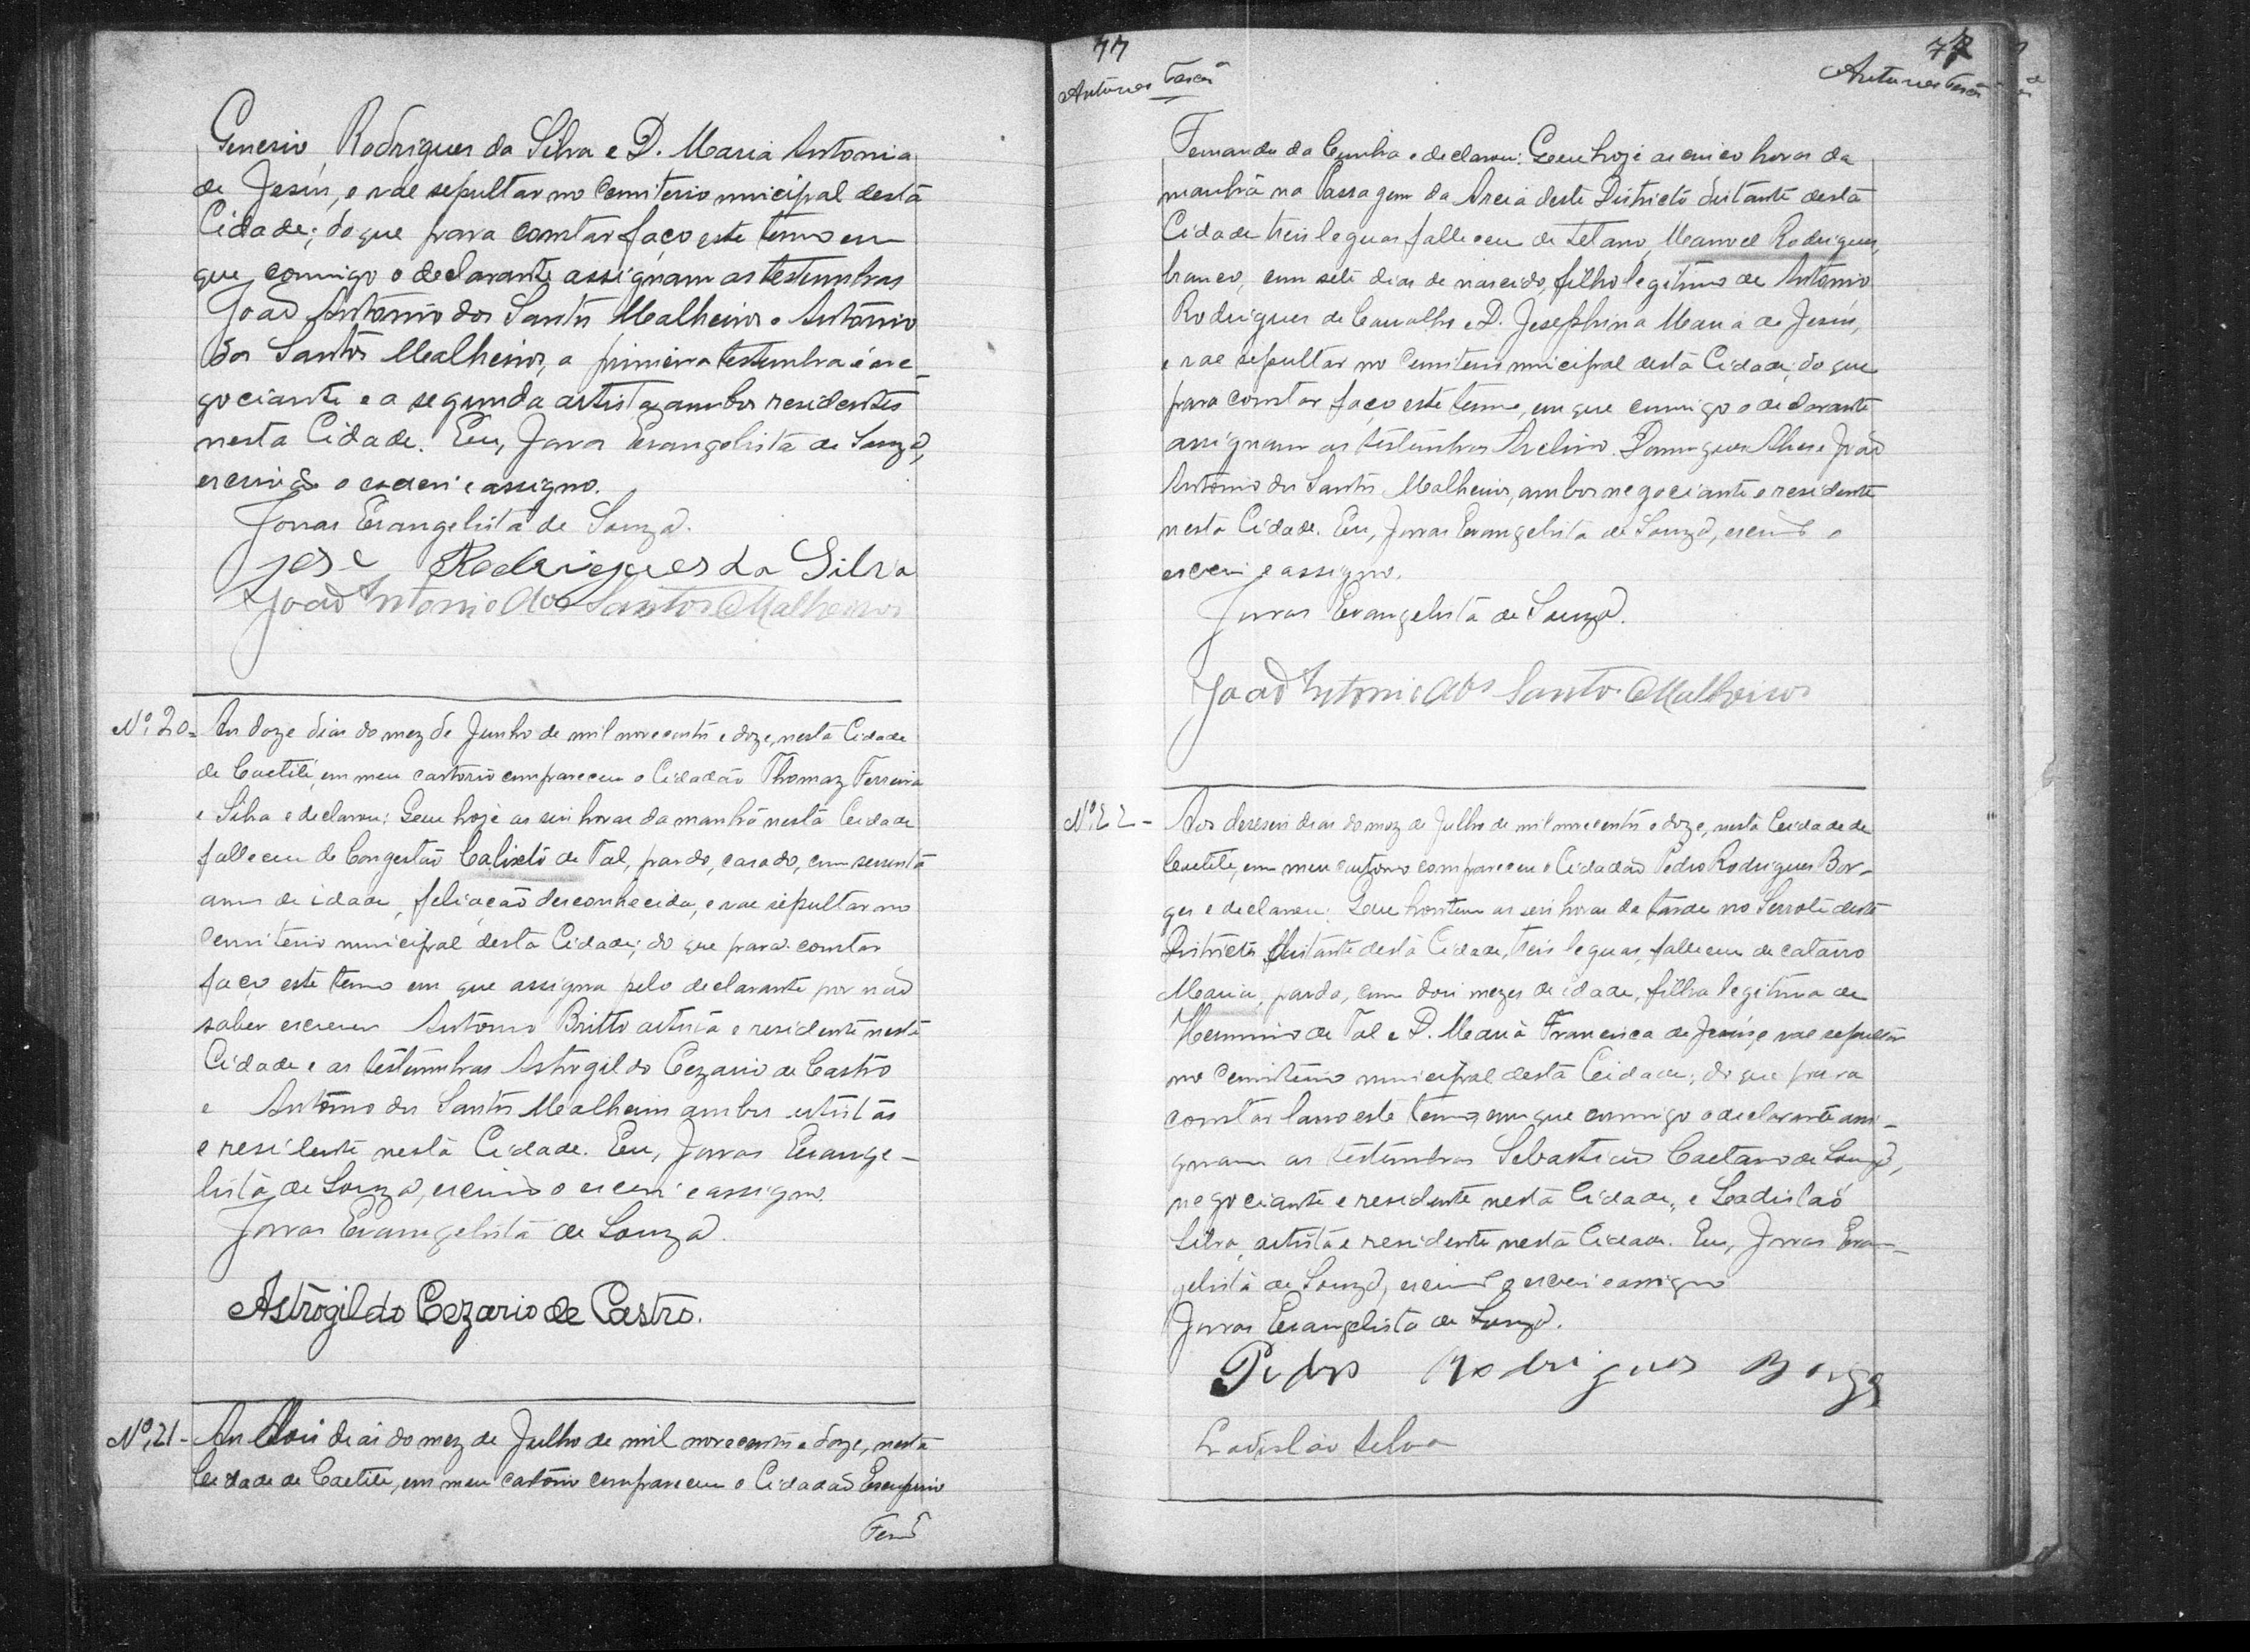 Generio Rodrigues da Silva e D. Maria Antonia
de Jesus, e vae sepultar no Cemiterio municipal desta
Cidade; do que para constar faço este termo em
que commigo o declarante assignam as testemunhas
João Antonio dos Santos Malheiros e Antonio
dos Santos Malheiros, a primeira testemunha é ne-
gociante e a segunda artista, ambos residentes
nesta Cidade. Eu, Jonas Evangelista de Souza,
escrivão o escrevi e assigno.
Jonas Evangelista de Souza.
José Rodrigues da Silva
João Antonio dos Santos Malheiros
Nº 20- Aos doze dias do mez de Junho de mil novecentos e doze, nesta Cidade
de Caetité, em meu cartorio compareceu o Cidadão Thomaz Ferreira
e Silva e declarou: Que hoje as seis horas da manhã nesta Cidade
falleceu de Congestão Calixto de Tal, pardo, casado, com sessenta
annos de idade, feliação desconhecida, e vae sepultar no
Cemiterio municipal desta Cidade; do que para constar
faço este termo em que assigna pelo declarante por não
saber escrever Antonio Britto artista e residente nesta
Cidade e as testemunhas Astrogildo Cezario de Castro
e Antonio dos Santos Malheiros ambos artistas
e residente nesta Cidade. Eu, Jonas Evange-
lista de Souza, escrivão o escrevi e assigno.
Jonas Evangelista de Souza.
Astrogildo Cezario de Castro.
Nº 21- Aos dois dias do mez de Julho de mil novecentos e doze, nesta
Cidade de Caetité, em meu cartorio compareceu o Cidadão
77
Antunes
77
Antunes
Fernandes da Cunha e declarou: Que hoje as cinco horas da
manhã na Passagem da Areia deste Districto distante desta
Cidade treis leguas falleceu de tetano, Manoel Rodrigues,
branco, com sete dias de nascido, filho legitimo de Antonio
Rodrigues de Carvalho e D. Josephina Maria de Jesus,
e vae sepultar no Cemiterio municipal desta Cidade; do que
para constar faço este termo, em que commigo o declarante
assignam as testemunhas Avelino Domingues Alves e João
Antonio dos Santos Malheiros, ambos negociante e residente
nesta Cidade. Eu, Jonas Evangelista de Souza, escrivão o
escrevi e assigno.
Jonas Evangelista de Souza.
João Antonio dos Santos Malheiros
Nº 22- Aos deseseis dias do mez de Julho de mil novecentos e doze, nesta Cidade de
Caetité, em meu cartorio compareceu o Cidadão Pedro Rodrigues Bor-
ges e declarou: Que hontem as seis horas da tarde no Serrote deste
Districto distante desta Cidade, treis leguas, falleceu de catarro
Maria, parda, com dois mezes de idade, filha legitima de
Herminio de Tal e D. Maria Francisca de Jesus, e vae sepultar
no Cemiterio municipal desta Cidade; do que para
constar lavro este termo, em que commigo o declarante assi-
gnam as testemunhas Sebastião Caetano de Souza,
negociante e residente nesta Cidade, e Ladislaó
Silva, artista e residente nesta Cidade. Eu, Jonas Evan-
gelista de Souza, escrivão o escrevi e assigno
Jonas Evangelista de Souza.
Pedro Rodrigues Borges
Ladislão Silva